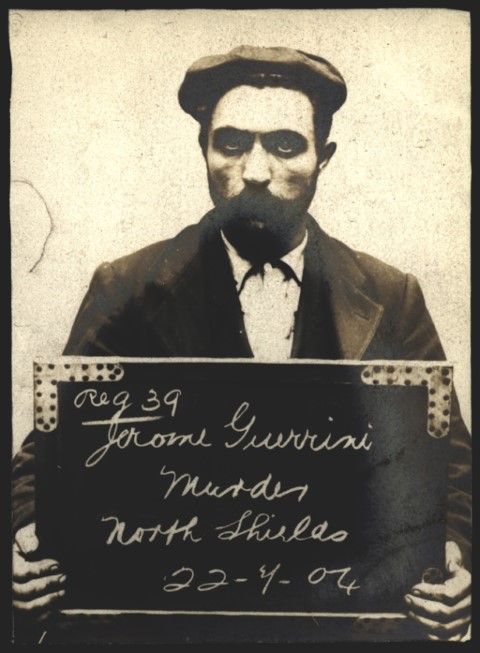 Reg 39
Jerome Guerrini
Murder
North Shields
22-4-04